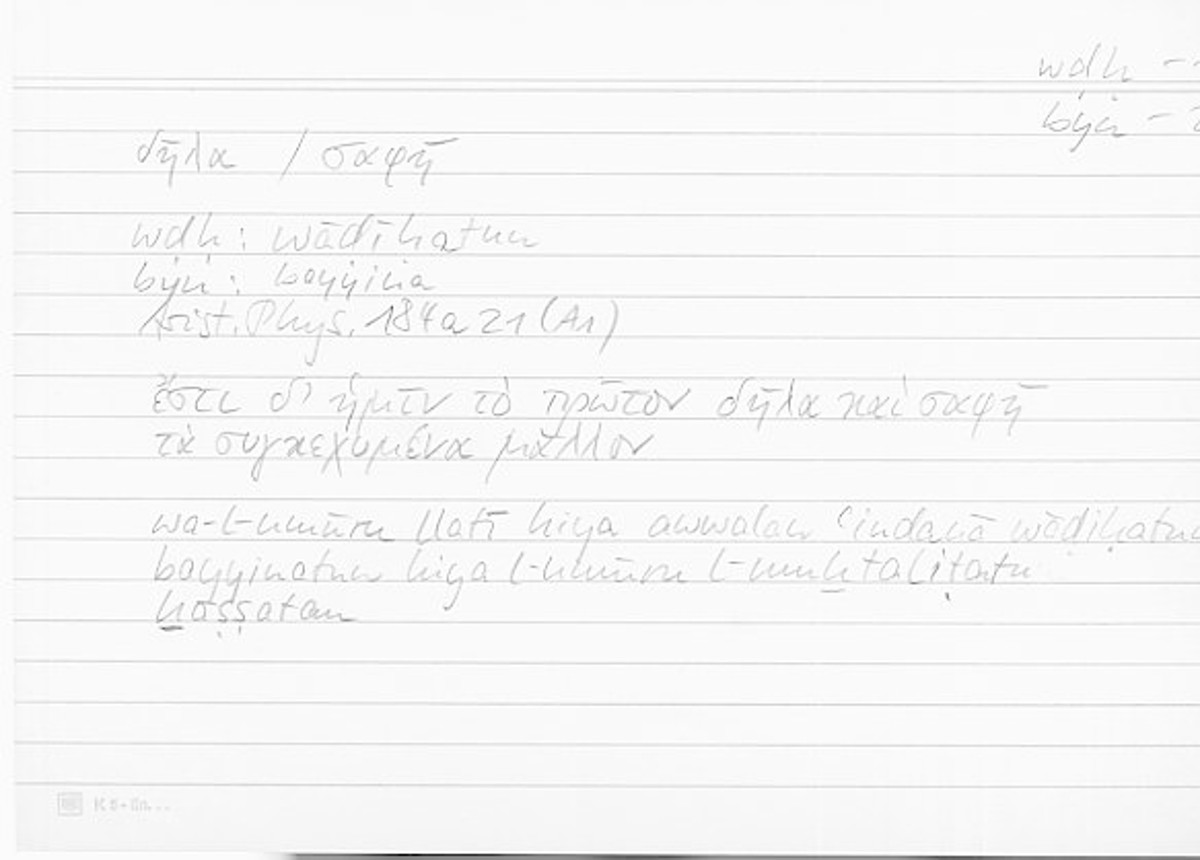 wḍḥ –
byn –
δῆλα / σαφῆ
wḍḥ : wāḍiḥatun
byn : bayyina
Arist. Phys. 184 a 21 (A1)
ἔστι δ' ἡμῖν τὸ πρῶτον δῆλα καὶ σαφῆ
τὰ συγκεχυμένα μᾶλλον
wa-l-umūru llatī hiya awwalan ʿindanā wāḍiḥatun
bayyinatun hiya l-umūru l-muḫtaliṭatu
ḫāṣṣatan